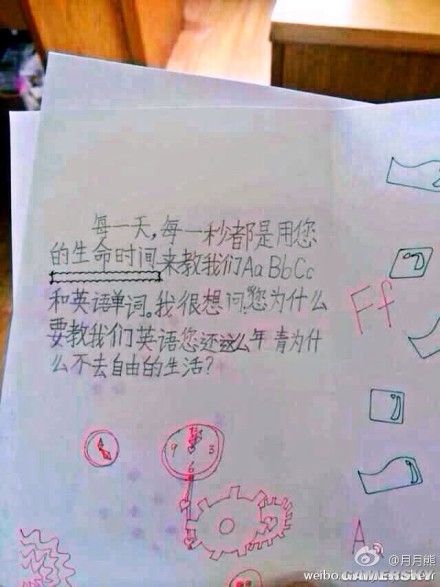 每一天,每一秒都是用您
的生命时间来教我们AaBbCc
和英语单词。我很想问,您为什么
要教我们英语您还这么年青为什
么不去自由的生活?
Ff
9
3
6
A
@月月熊
GAMERSKY